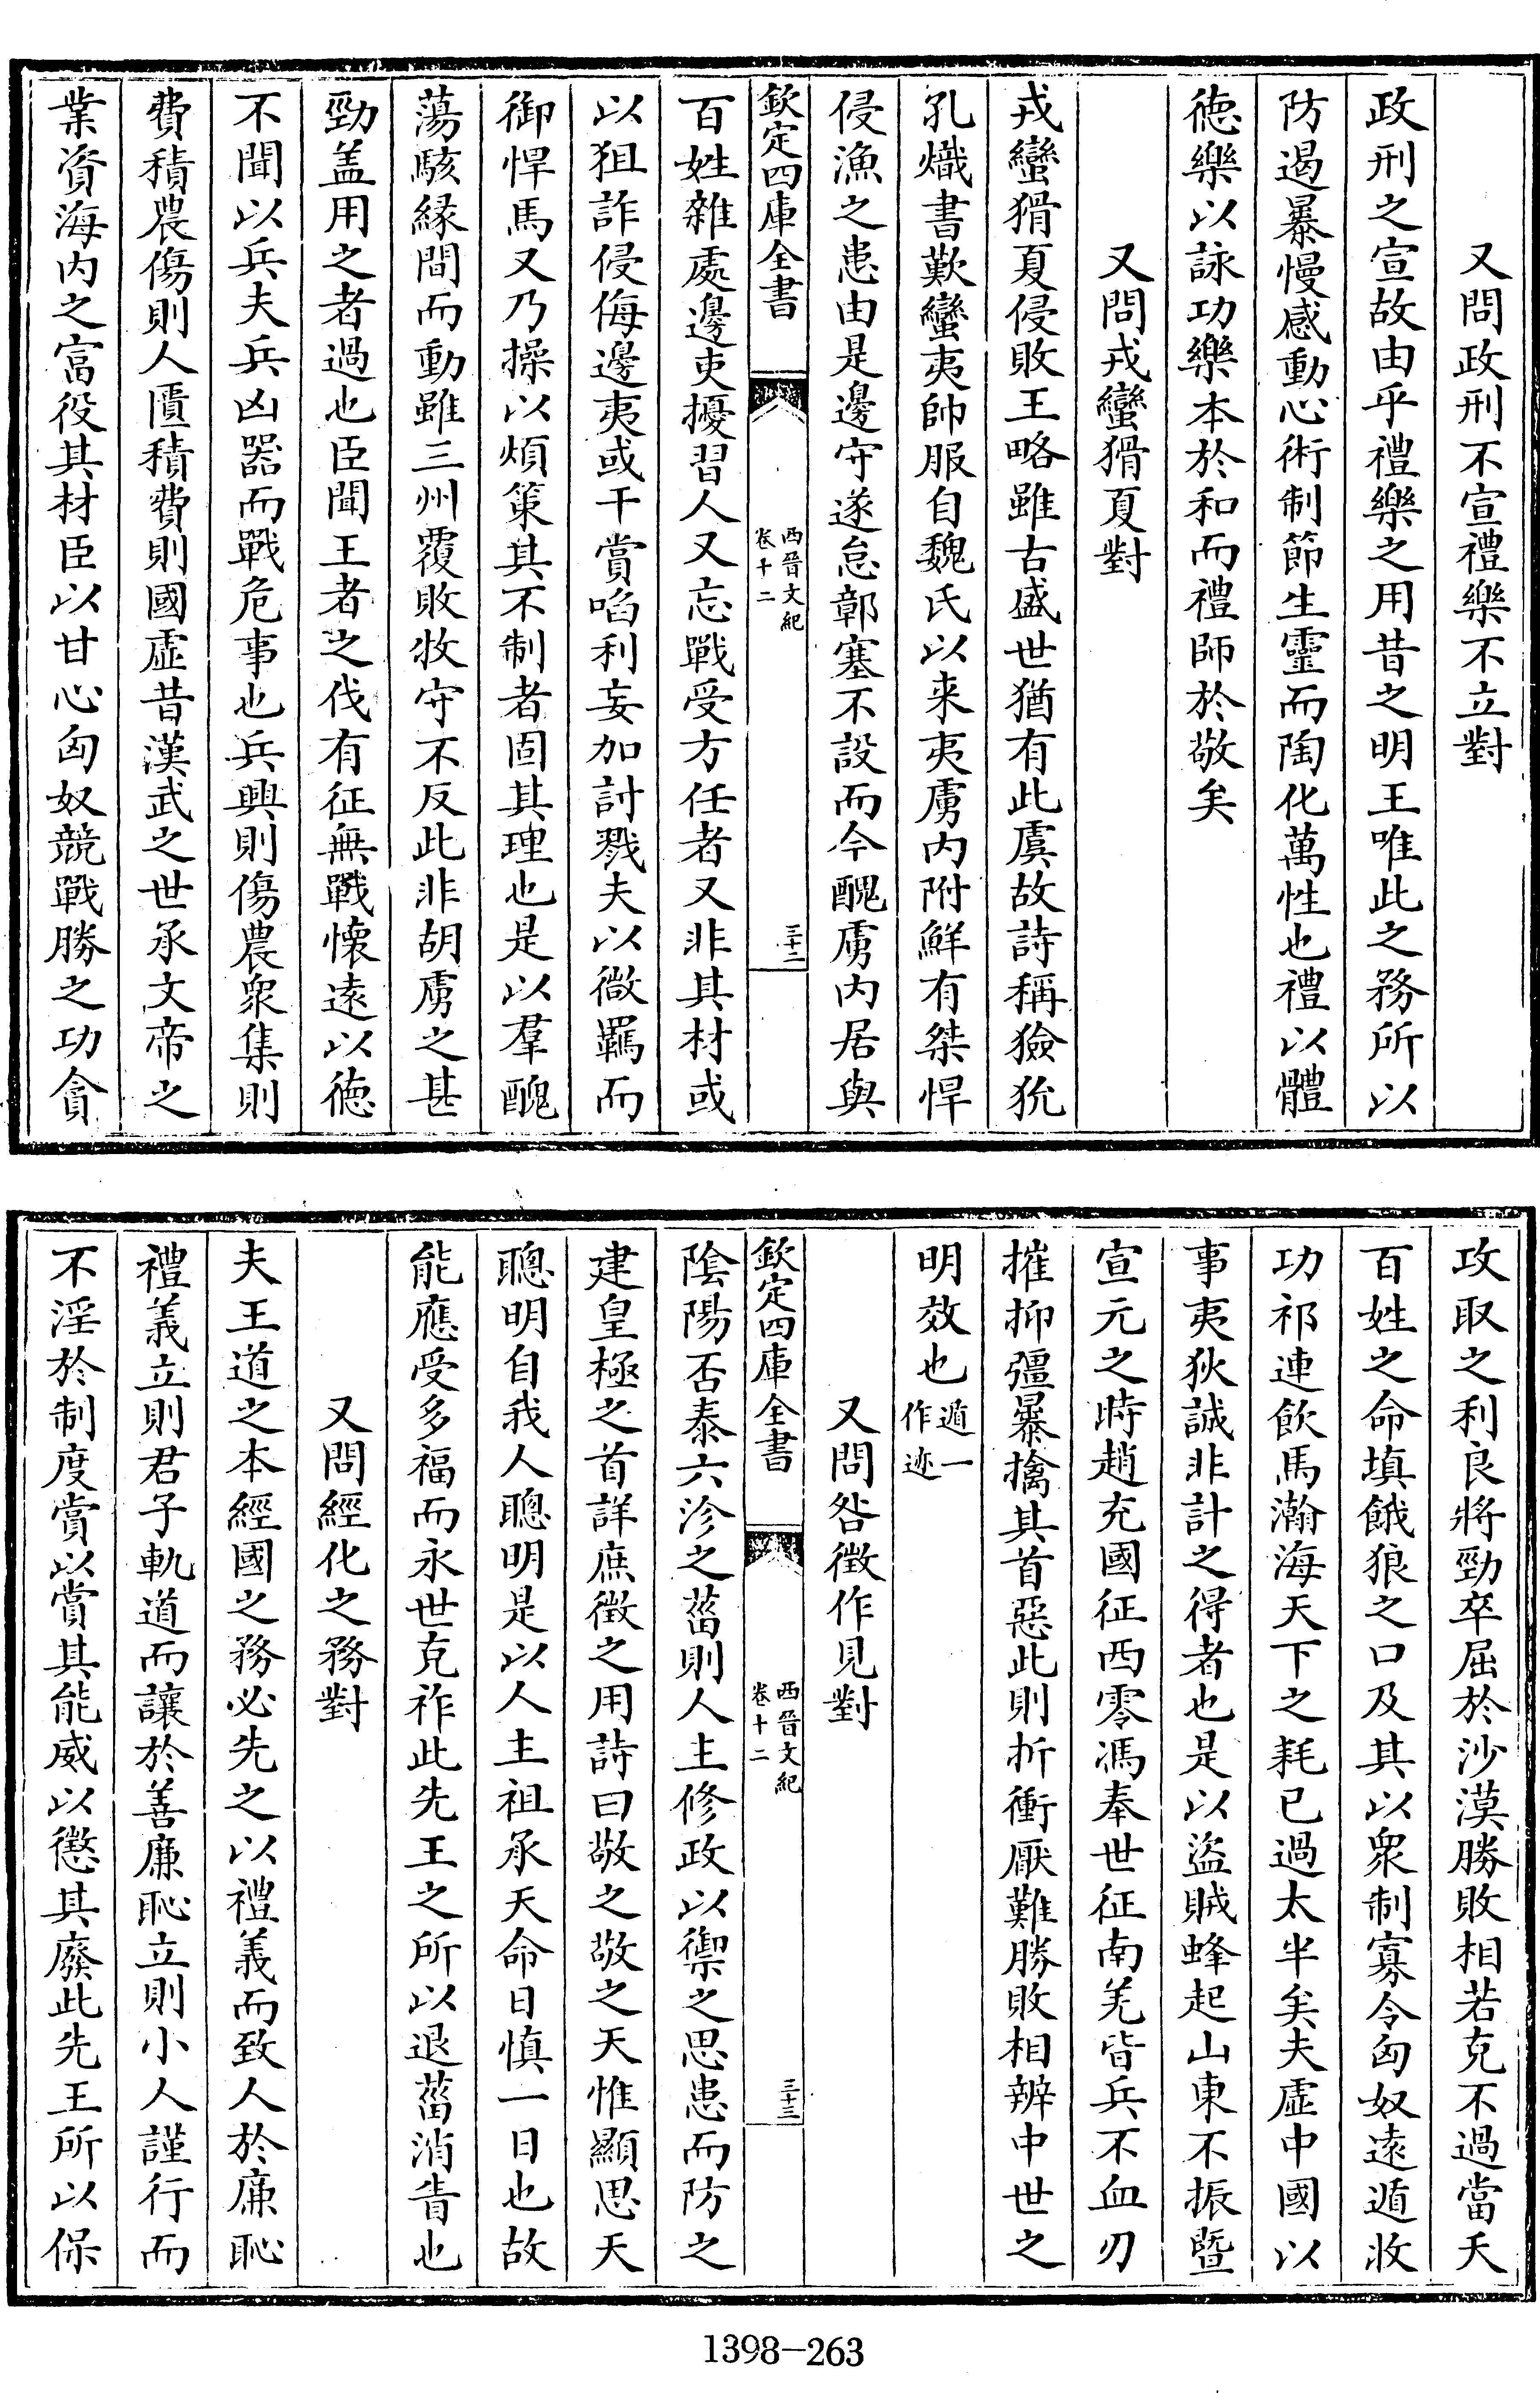 又問政刑不宣禮樂不立對
政刑之宣故由乎禮樂之用昔之明王唯此之務所以
防遏暴慢感動心術制節生靈而陶化萬性也禮以體
徳樂以詠功樂本於和而禮師於敬矣
又問戎蠻猾夏對
戎蠻猾夏侵敗王略雖古盛世猶有此虞故詩稱獫狁
孔熾書歎蠻夷帥服自魏氏以来夷虜内附鮮有桀悍
侵漁之患由是邊守遂怠鄣塞不設而今醜虜内居與
欽定四庫全書
西晉文紀
卷十二
三十二
百姓雜處邊吏擾習人又忘戰受方任者又非其材或
以狙詐侵侮邊夷或干賞啗利妄加討戮夫以微羈而
御悍馬又乃操以煩策其不制者固其理也是以羣醜
蕩駭緣間而動雖三州覆敗牧守不反此非胡虜之甚
勁盖用之者過也臣聞王者之伐有征無戰懷遠以徳
不聞以兵夫兵凶器而戰危事也兵興則傷農衆集則
費積農傷則人匱積費則國虛昔漢武之世承文帝之
業資海内之富役其材臣以甘心匈奴競戰勝之功貪
攻取之利良將勁卒屈於沙漠勝敗相若克不過當夭
百姓之命填餓狼之口及其以衆制寡令匈奴遠遁收
功祁連飲馬瀚海天下之耗已過太半矣夫虛中國以
事夷狄誠非計之得者也是以盜賊蜂起山東不振暨
宣元之時趙充國征西零馮奉世征南羌皆兵不血刃
摧抑彊暴擒其首惡此則折衝厭難勝敗相辨中世之
明效也遁一作迹
又問咎徵作見對
欽定四庫全書
西晉文紀
卷十二
三十三
陰陽否泰六沴之菑則人主修政以禦之思患而防之
建皇極之首詳庶徵之用詩曰敬之敬之天惟顯思天
聰明自我人聰明是以人主祖承天命日慎一日也故
能應受多福而永世克祚此先王之所以退菑消眚也
又問經化之務對
夫王道之本經國之務必先之以禮義而致人於廉恥
禮義立則君子軌道而讓於善廉恥立則小人謹行而
不淫於制度賞以賞其能威以懲其廢此先王所以保
1398-263